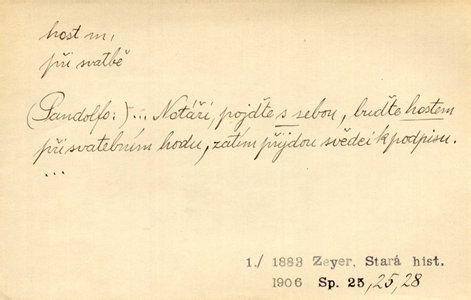 host m,
při svatbě
(Pandolfo:) ... Notáři, pojďte s sebou, buďte hostem
při svatebním hodu, zatím přijdou svědci k podpisu.
...
1./ 1883 Zeyer, Stará hist.
1906 Sp. 25, 25, 28